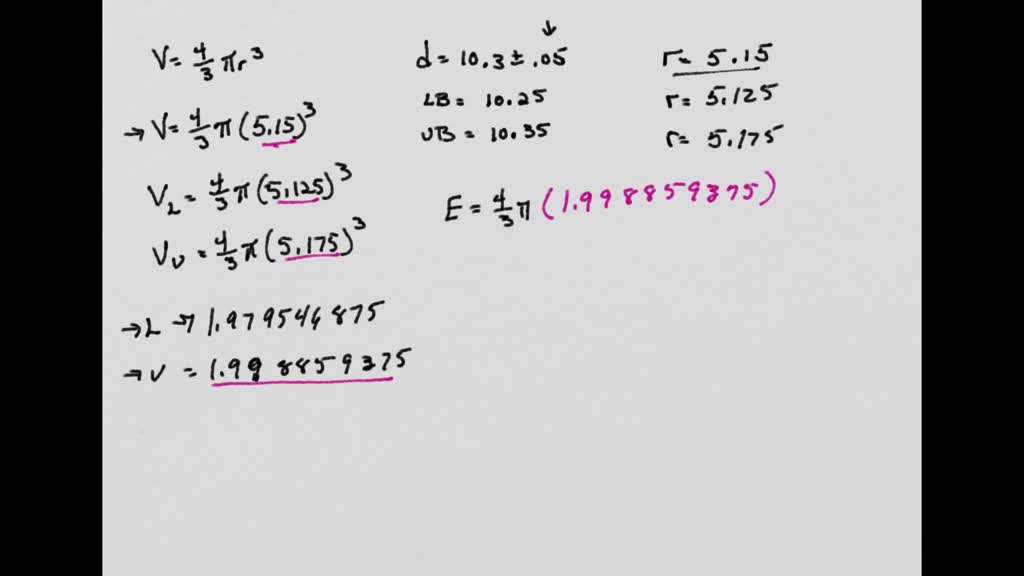 V = 4/3 πr³
→ V = 4/3 π (5.15)³
V_L = 4/3 π (5.125)³
V_U = 4/3 π (5.175)³
→ L → 1.979546875
→ U = 1.998859375
↓
d = 10.3 ± .05
LB = 10.25
UB = 10.35
r = 5.15
r = 5.125
r = 5.175
E = 4/3 π (1.998859375)